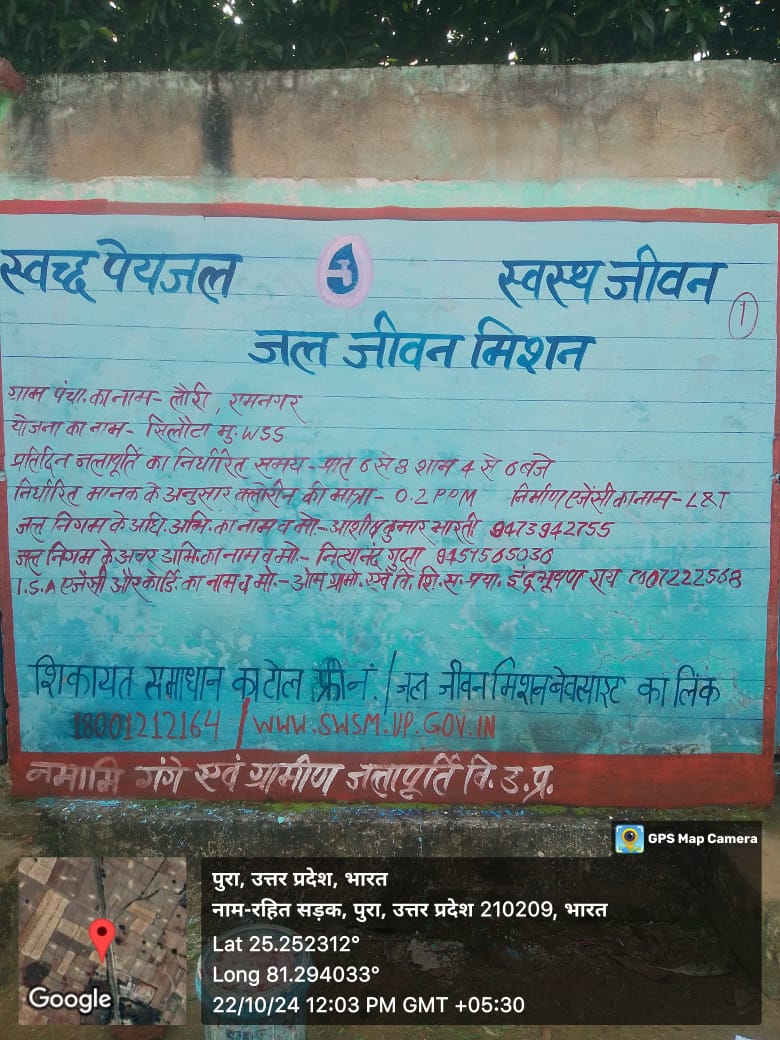 स्वच्छ पेयजल स्वस्थ जीवन
1
जल जीवन मिशन
ग्राम पंचा. का नाम - लौरी, रामनगर
योजना का नाम - सिलौटा मु. WSS
प्रतिदिन जलापूर्ति का निर्धारित समय - प्रात 6 से 8 शाम 4 से 6 बजे
निर्धारित मानक के अनुसार क्लोरीन की मात्रा - 0.2 PPM निर्माण एजेंसी का नाम - L&T
जल निगम के अधि. अभि. का नाम व मो. - आशीष कुमार भारती 9473942755
जल निगम के अवर अभि. का नाम व मो. - नित्यानंद गुप्ता 9457565030
I.S.A एजेंसी और कोर्डि. का नाम व मो. - ओम ग्रामा. शि. स. इंद्रभूषण राय
शिकायत समाधान का टोल फ्री नं. / जल जीवन मिशन बेवसाइट का लिंक
18001212164 / WWW.SWSM.UP.GOV.IN
नमामि गंगे एवं ग्रामीण जलापूर्ति वि. उ. प्र.
GPS Map Camera
पुरा, उत्तर प्रदेश, भारत
नाम-रहित सड़क, पुरा, उत्तर प्रदेश 210209, भारत
Lat 25.252312°
Long 81.294033°
22/10/24 12:03 PM GMT +05:30
Google